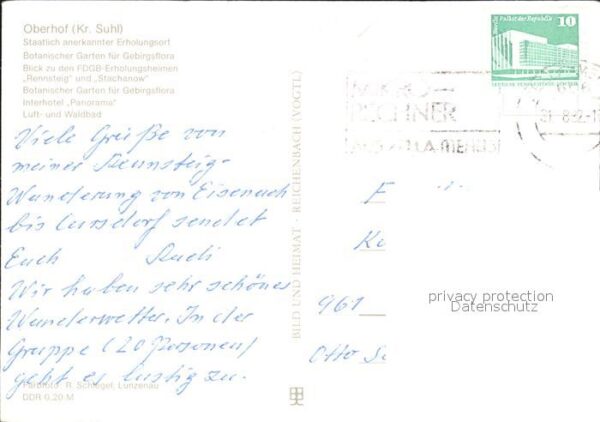 Oberhof (Kr. Suhl)
Staatlich anerkannter Erholungsort
Botanischer Garten für Gebirgsflora
Blick zu den FDGB-Erholungsheimen
„Rennsteig" und „Stachanow"
Botanischer Garten für Gebirgsflora
Interhotel „Panorama"
Luft- und Waldbad
Viele Grüße von
meiner Rennsteig-
Wanderung von Eisenach
bis sendet
Euch Rudi
Wir haben sehr schönes
Wanderwetter. In der
Gruppe (20 Personen)
geht es lustig zu.
Farbfoto: R. Schlegel, Lunzenau
DDR 0,20 M
BILD UND HEIMAT · REICHENBACH (VOGTL)
Palast der Republik
10
RECHNER
961
Otto
privacy protection
Datenschutz